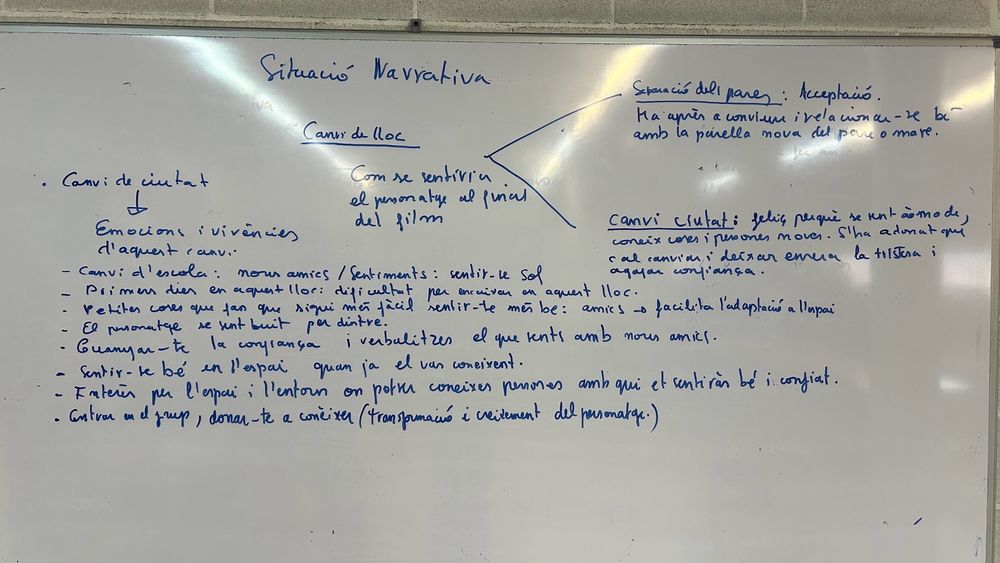 Situació Narrativa
Canvi de lloc
Separació dels pares: Acceptació.
Ha après a conviure i relacionar-se bé
amb la parella nova del pare o mare.
Com se sentiria
el personatge al final
del film
canvi ciutat: feliç perquè se sent còmode,
coneix coses i persones noves. S'ha adonat que
cal canviar i deixar enrera la tristesa i
agafar confiança.
• Canvi de ciutat
Emocions i vivències
d'aquest canvi.
- Canvi d'escola: nous amics / Sentiments: sentir-se sol
- Primers dies en aquest lloc: dificultat per encaixar en aquest lloc.
- Petites coses que fan que sigui més fàcil sentir-te més bé: amics → facilita l'adaptació a l'espai
- El personatge se sent buit per dintre.
- Guanyar-te la confiança i verbalitzes el que sents amb nous amics.
- Sentir-se bé en l'espai quan ja el vas coneixent.
- Interès per l'espai i l'entorn on potser coneixes persones amb qui et sentiràs bé i confiat.
- Entrar en el grup, donar-te a conèixer (transformació i creixement del personatge.)